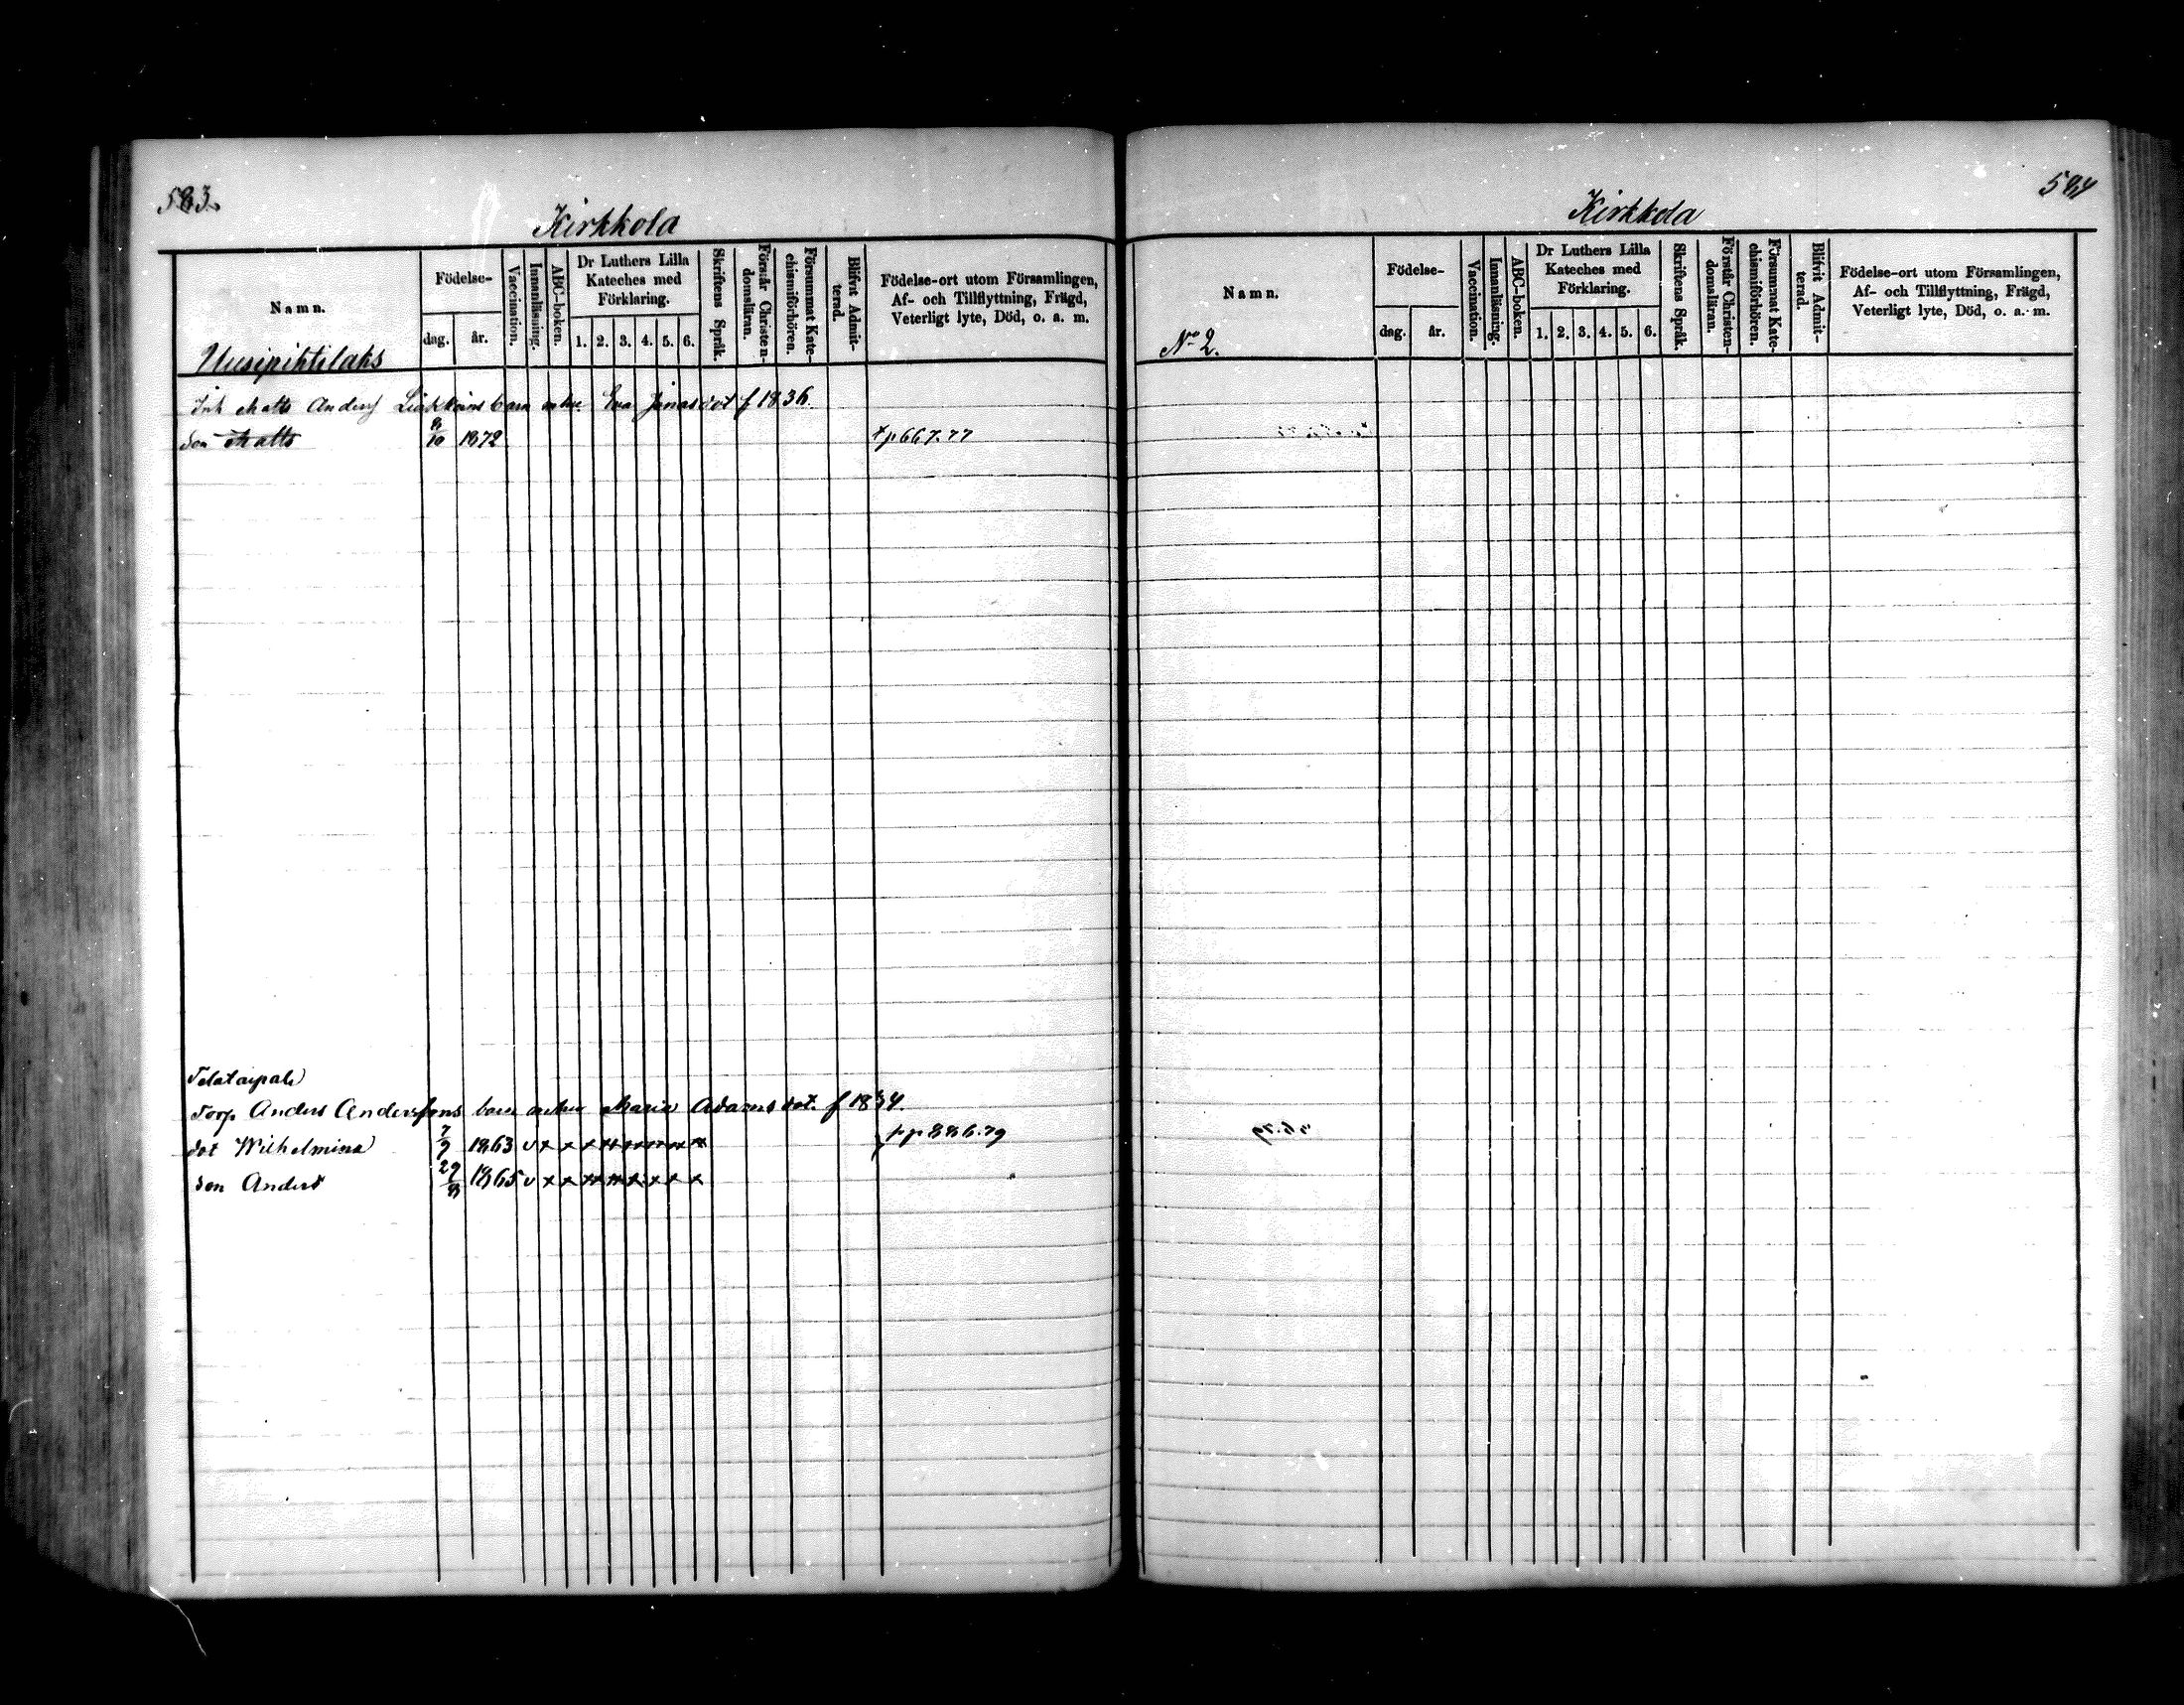 583.
Kirkkola
Namn.
Födelse-
dag.
år.
Vaccination.
Innanläsning.
ABC-boken.
Dr Luthers Lilla Kateches med Förklaring.
1. 2. 3. 4. 5. 6.
Skriftens Språk.
Förstår Christendomsläran.
Försummat Katechismiförhören.
Blifvit Admitterad.
Födelse-ort utom Församlingen,
Af- och Tillflyttning, Frägd,
Veterligt lyte, Död, o. a. m.
Uusipihtilaks
Inh Matts Anders barn Eva Jonasdot f 1836.
Son Matts 8/10 1872 p 667.77
Torp Anders Anderssons barn Maria Adamsdot. f 1834.
dot Wilhelmina 7/9 1863 v x x x x x x x x p p 886.79
Son Anders 29/8 1865 v x x x x x x x x
584
Kirkkola
Namn.
Födelse-
dag.
år.
Vaccination.
Innanläsning.
ABC-boken.
Dr Luthers Lilla Kateches med Förklaring.
1. 2. 3. 4. 5. 6.
Skriftens Språk.
Förstår Christendomsläran.
Försummat Katechismiförhören.
Blifvit Admitterad.
Födelse-ort utom Församlingen,
Af- och Tillflyttning, Frägd,
Veterligt lyte, Död, o. a. m.
No 2.